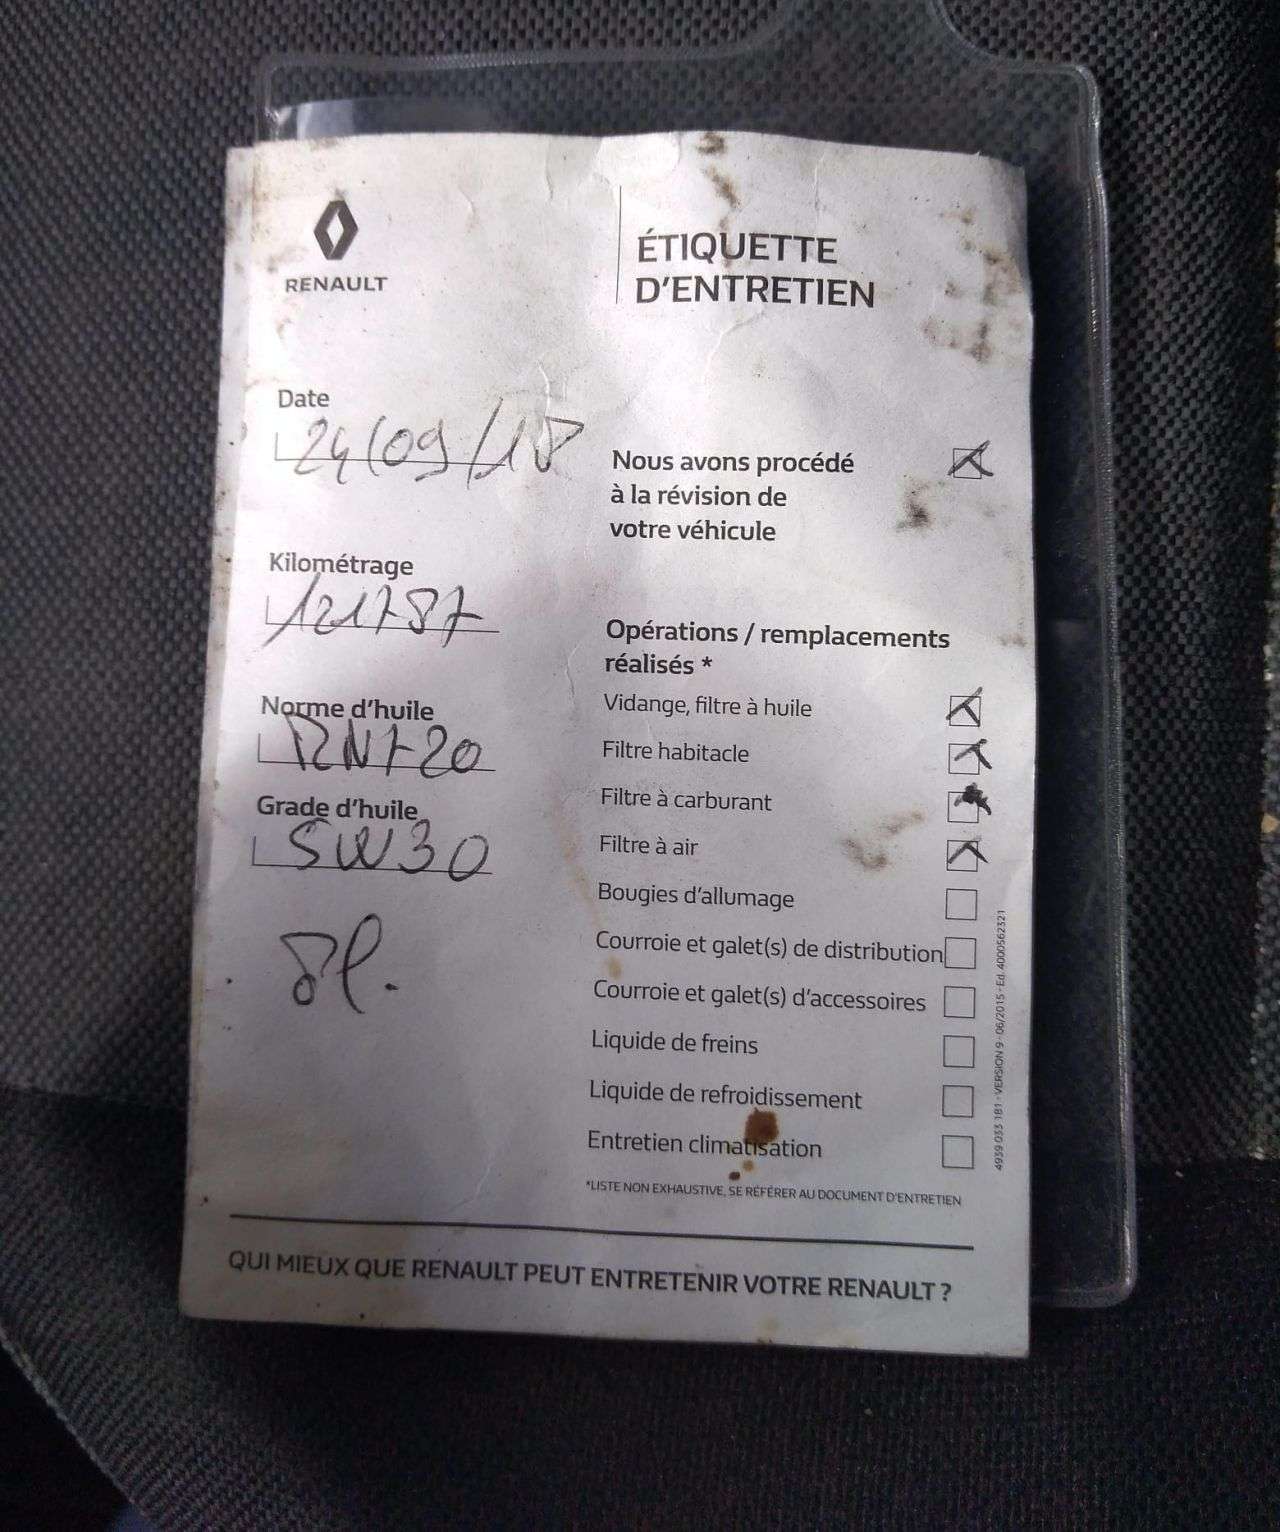 RENAULT
ÉTIQUETTE
D'ENTRETIEN
Date
24/09/18
Kilométrage
121787
Norme d'huile
RN720
Grade d'huile
5W30
8l.
Nous avons procédé
à la révision de
votre véhicule
Opérations / remplacements
réalisés *
Vidange, filtre à huile
Filtre habitacle
Filtre à carburant
Filtre à air
Bougies d'allumage
Courroie et galet(s) de distribution
Courroie et galet(s) d'accessoires
Liquide de freins
Liquide de refroidissement
Entretien climatisation
*LISTE NON EXHAUSTIVE, SE RÉFÉRER AU DOCUMENT D'ENTRETIEN
4939 033 1B1 - VERSION 9 - 06/2015 - Ed. 4000562321
QUI MIEUX QUE RENAULT PEUT ENTRETENIR VOTRE RENAULT ?